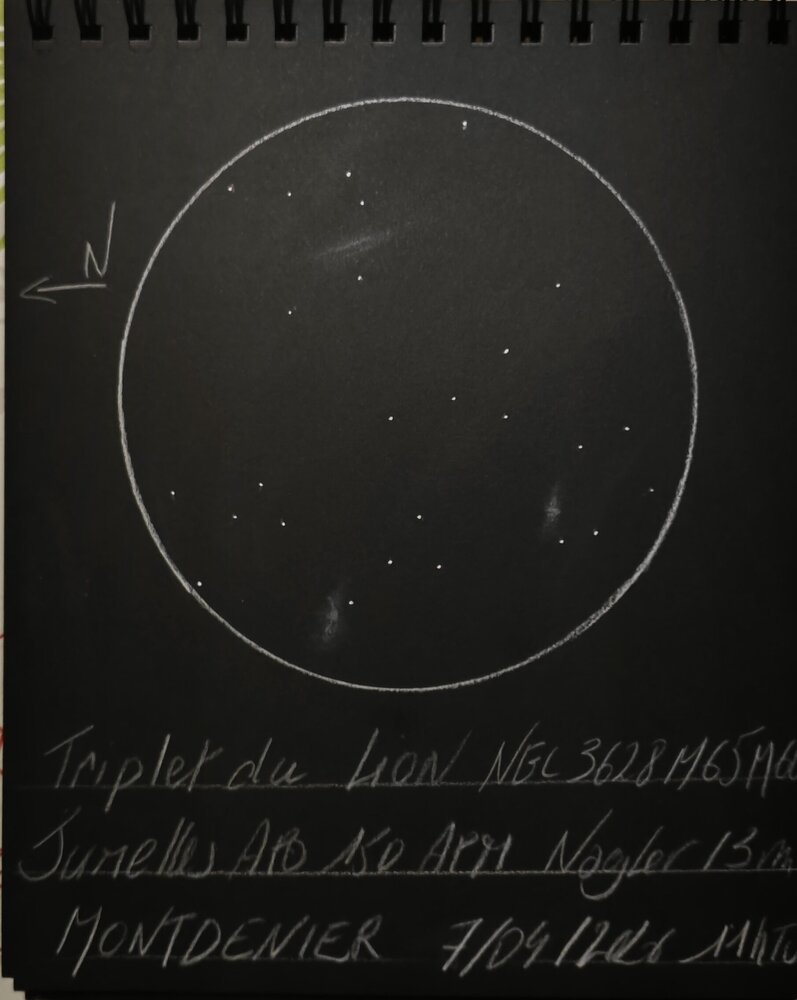 N
Triplet du LION NGC 3628 M65 M66
Jumelles APO 150 APM Nagler 13m
MONTDENIER 7/04/ 11hTU